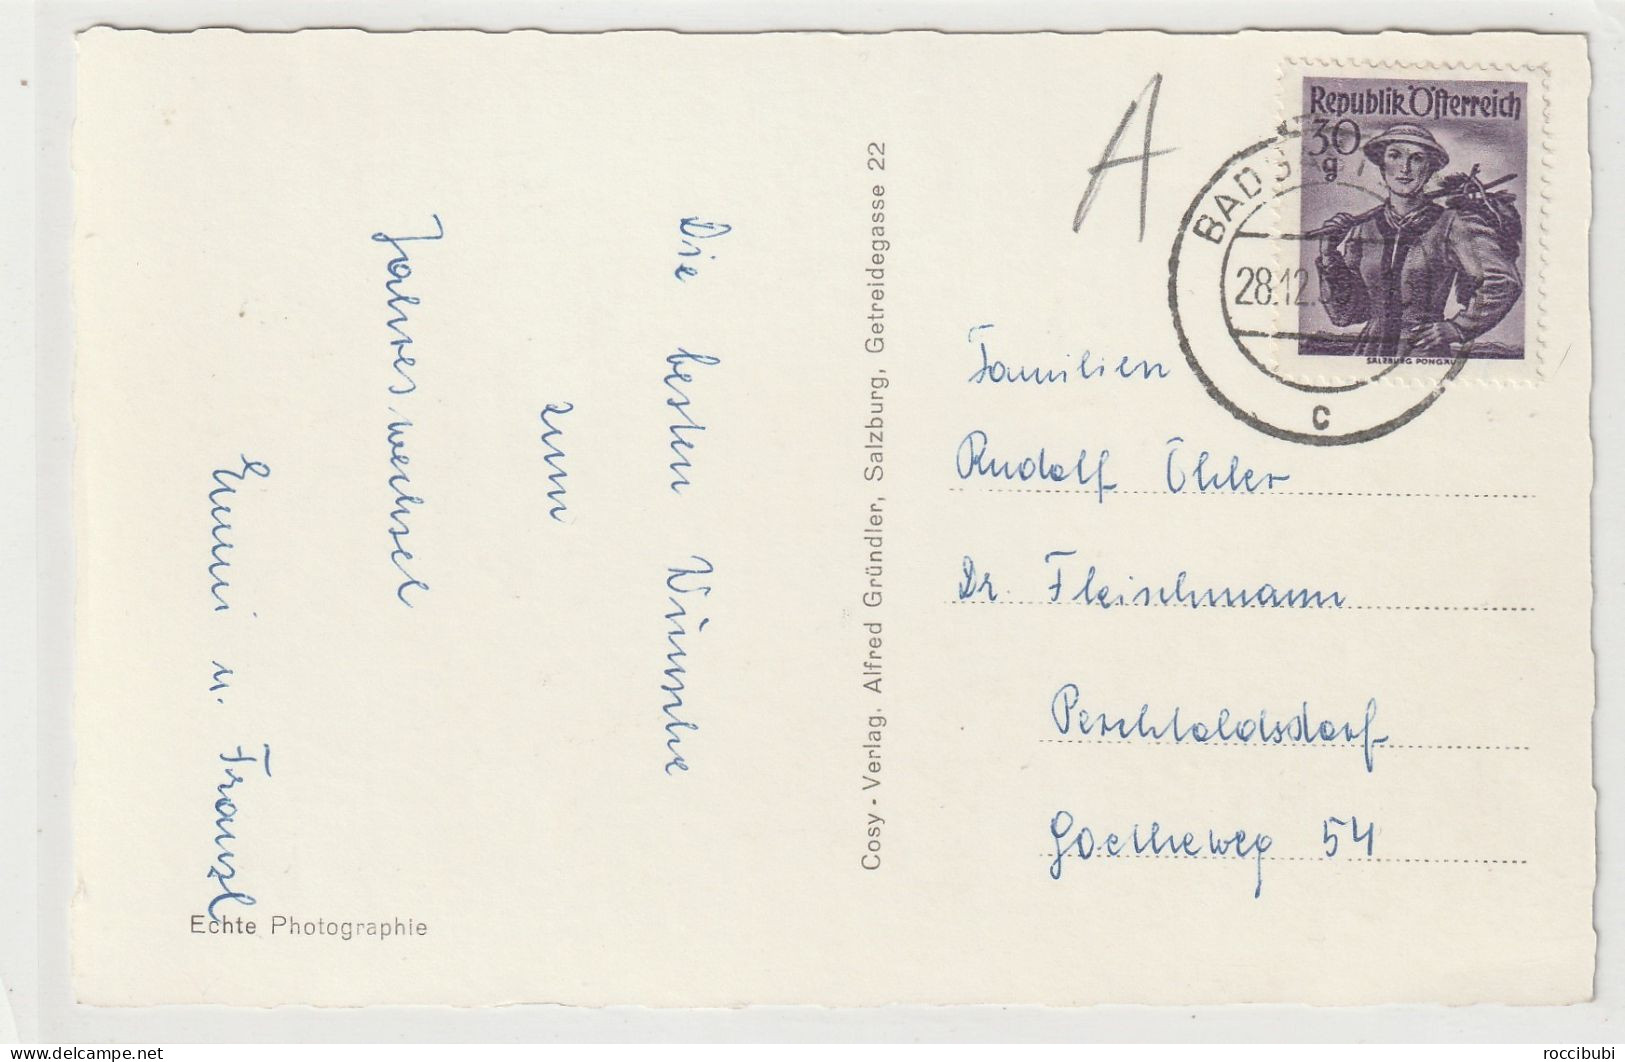 Die besten Wünsche
zum
Jahreswechsel
Emmi u. Franzl
Echte Photographie
Cosy - Verlag, Alfred Gründler, Salzburg, Getreidegasse 22
A
Republik Österreich
30
g
SALZBURG PONGAU
BAD
28.12.
c
Familien
Rudolf Öhler
Dr. Fleischmann
Perchtoldsdorf
Goetheweg 54
roccibubi